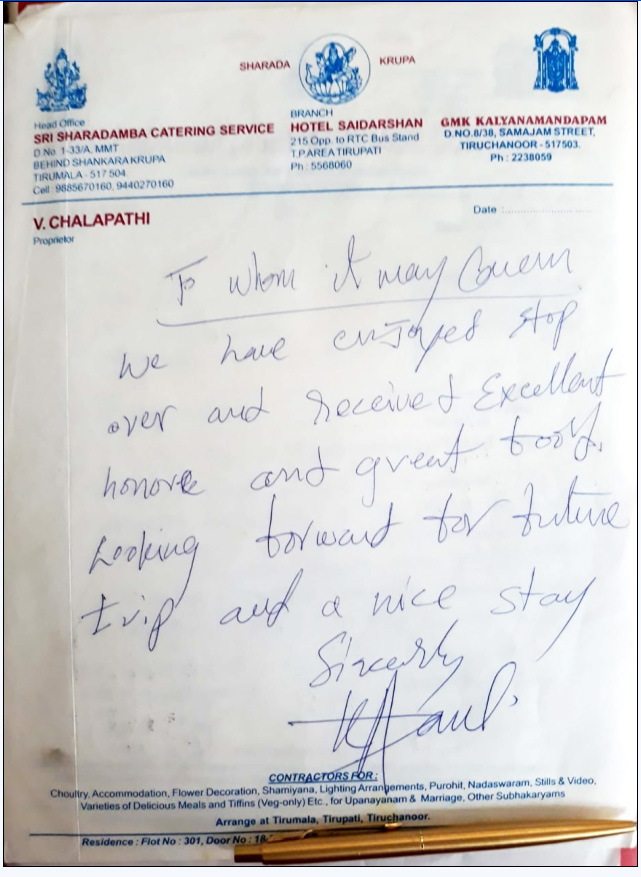 SHARADA KRUPA
Head Office
SRI SHARADAMBA CATERING SERVICE
D.No. 1-33/A, MMT
BEHIND SHANKARA KRUPA
TIRUMALA - 517 504.
Cell : 9885670160, 9440270160
BRANCH
HOTEL SAIDARSHAN
215 Opp. to RTC Bus Stand
T.P.AREA TIRUPATI
Ph : 5568060
GMK KALYANAMANDAPAM
D.NO.8/38, SAMAJAM STREET,
TIRUCHANOOR - 517503.
Ph : 2238059
V. CHALAPATHI
Proprietor
Date :
To whom it may Concern
We have enjoyed stop
over and received Excellent
honore and great food.
Looking forward for future
trip and a nice stay
Sincerly
CONTRACTORS FOR :
Choultry, Accommodation, Flower Decoration, Shamiyana, Lighting Arrangements, Purohit, Nadaswaram, Stills & Video,
Varieties of Delicious Meals and Tiffins (Veg-only) Etc., for Upanayanam & Marriage, Other Subhakaryams
Arrange at Tirumala, Tirupati, Tiruchanoor.
Residence : Flot No : 301, Door No :